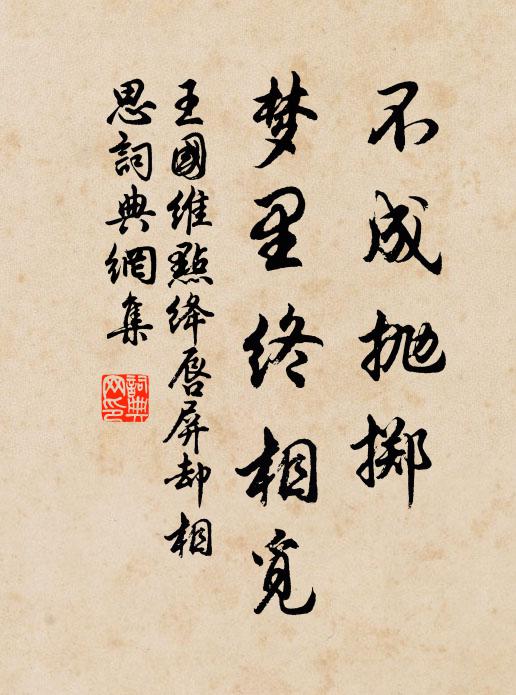 不成抛掷
梦里终相觅
王國维點绛唇屏却相
思詞典網集
詞典
网印